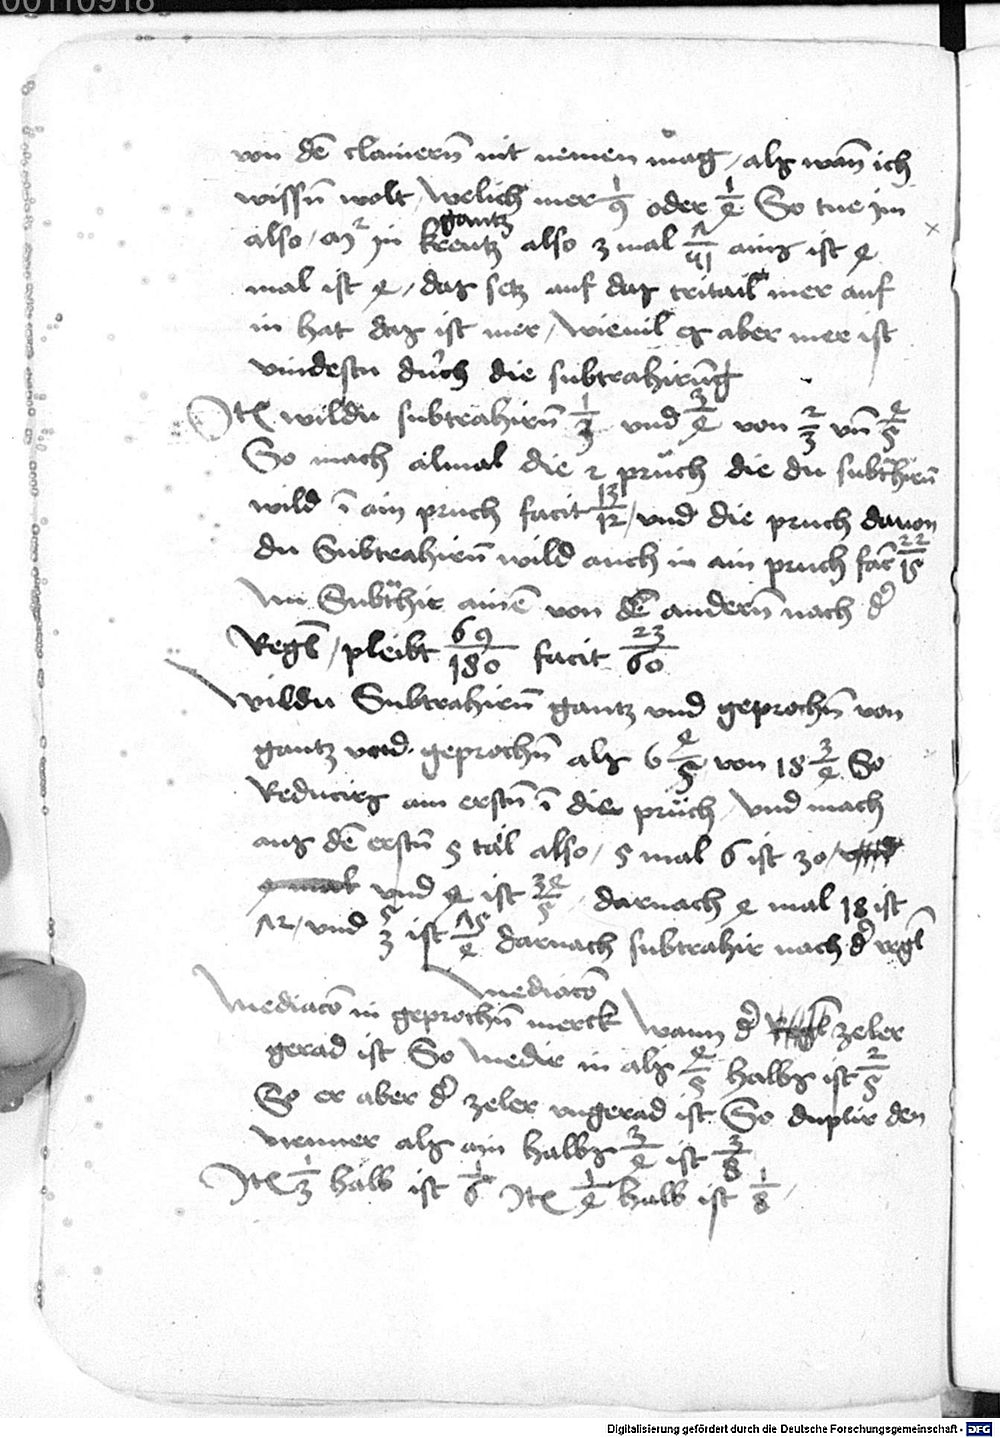 00110918
von dē clainern̄ nit nemen mag / als wan̄ ich
wissn̄ wolt / welich mer 1/3 oder 1/4 So tue im
also / in gantz
kreutz also 3 mal ains ist 4
mal ist 4 / das setz auf das tritail mer auf
in hat das ist mer / wieuil es aber mer ist
vindestu durch die subtrahirūg
Itē wildu subtrahirn̄ 1/3 vnd 3/4 von 2/3 vn̄ 4/5
So mach almal die 2 prüch die du subtrhirn̄
wild ī ain pruch facit 13/12 / vnd die pruch dauon
du Subtrahirn̄ wild auch in ain pruch fac̄ 22/15
Nu Subtrhir ainē von dē andern̄ nach dr̄
Regl̄ / pleibt 69/180 facit 23/60
Wildu Subtrahirn̄ gantz vnd geprochn̄ von
gantz vnd geprochn̄ als 6 4/5 von 18 3/4 So
Reducirs am erstn̄ ī die prüch / vnd mach
aus dē erstn̄ 5 tail also / 5 mal 6 ist 30 /
vnd 4 ist 34/5 / darnach 4 mal 18 ist
72 / vnd 3 ist 75/4 darnach subtrahir nach dr̄ regl̄
Mediacō
Mediacō in geprochn̄ merck Wann dr̄ zeler
gerad ist So Medir in als 4/5 halbs ist 2/5
So er aber dr̄ zeler vngerad ist So duplir den
nenner als ain halbs 3/4 ist 3/8
Itē 1/3 halb ist 1/6 Itē 1/4 halb ist 1/8
Digitalisierung gefördert durch die Deutsche Forschungsgemeinschaft - DFG